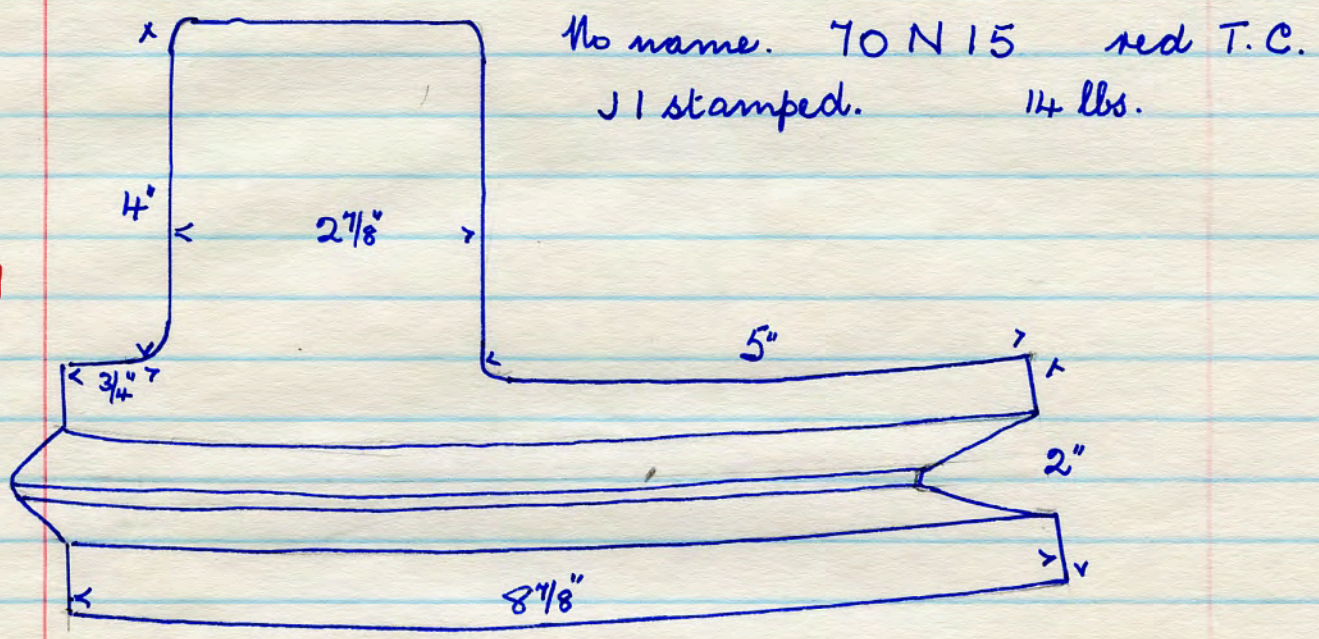 No name. 70 N 15 red T.C.
J1 stamped. 14 lbs.
4"
2 7/8"
5"
3/4"
2"
8 7/8"